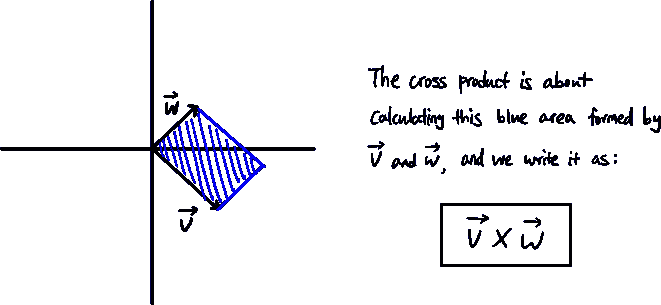 w⃗
v⃗
The cross product is about
calculating this blue area formed by
v⃗ and w⃗, and we write it as:
v⃗ × w⃗